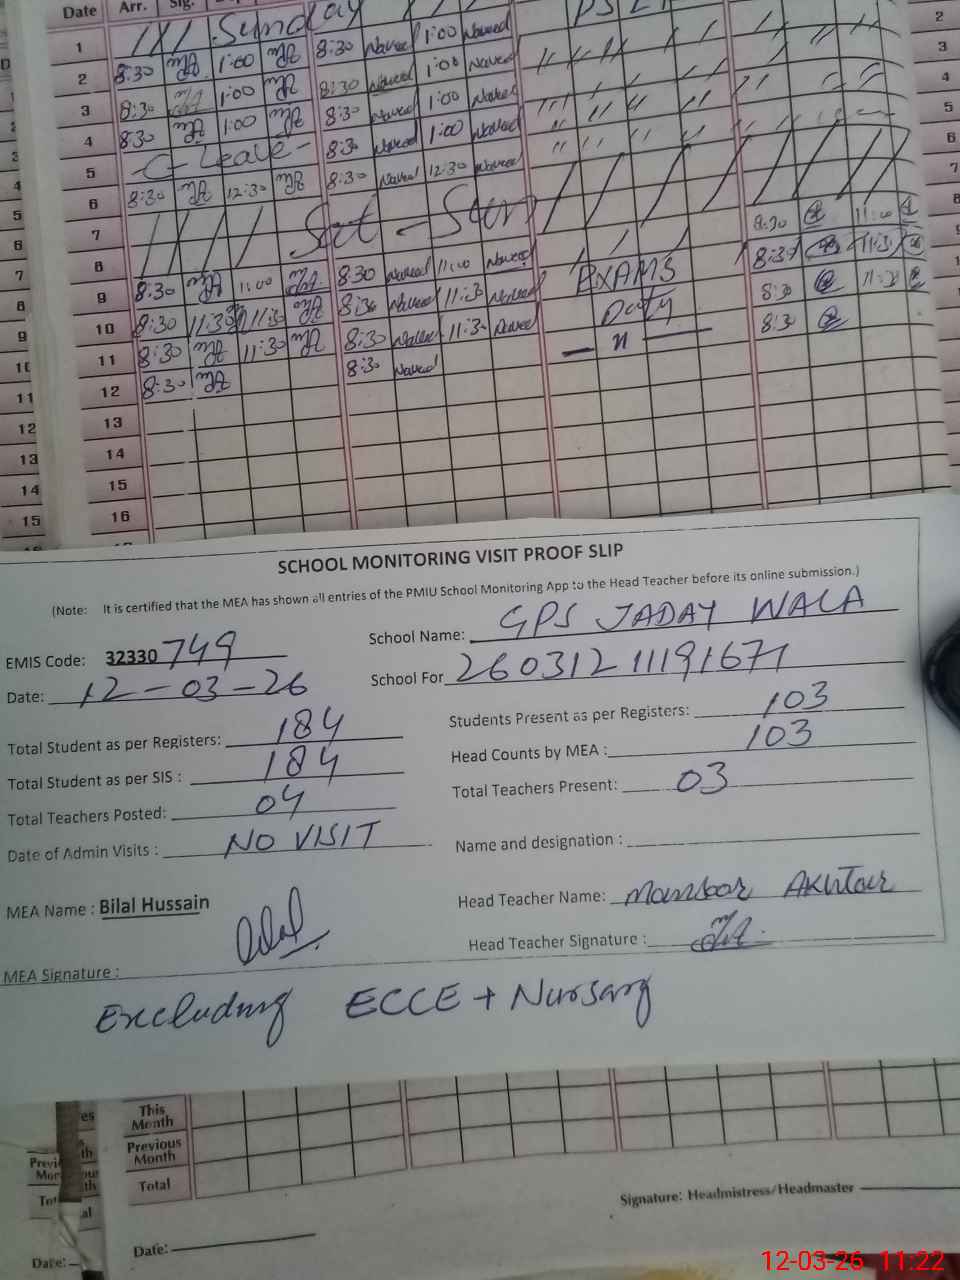 Date Arr. Sig.
1 Sunday 2
2 8:30 1:00 8:30 Naveed 1:00 Naveed 3
3 8:30 1:00 8:30 Naveed 1:00 Naveed 4
4 8:30 1:00 8:30 Naveed 1:00 Naveed 5
5 C- Leave - 8:30 Naveed 1:00 Naveed 6
6 8:30 12:30 8:30 Naveed 12:30 Naveed 7
7 Sat - Sun 8:30 11:00
8 8:30 11:3
9 8:30 11:00 8:30 Naveed 11:00 Naveed EXAMS 8:30
10 8:30 11:30 11:30 8:30 Naveed 11:30 Naveed Duty 8:30
11 8:30 11:30 8:30 Naveed 11:30 Naveed — " —
12 8:30 8:30 Naveed
13
14
15
16
SCHOOL MONITORING VISIT PROOF SLIP
(Note: It is certified that the MEA has shown all entries of the PMIU School Monitoring App to the Head Teacher before its online submission.)
EMIS Code: 32330 749 School Name: GPS JADAY WALA
Date: 12-03-26 School For 26031211191671
Total Student as per Registers: 184 Students Present as per Registers: 103
Total Student as per SIS : 184 Head Counts by MEA : 103
Total Teachers Posted: 04 Total Teachers Present: 03
Date of Admin Visits : NO VISIT Name and designation :
MEA Name : Bilal Hussain Head Teacher Name: Manzoor Akhtar
MEA Signature : Head Teacher Signature :
Excluding ECCE + Nursary
This Month
Previous Month
Total
Signature: Headmistress/Headmaster
Date:
12-03-26 11:22